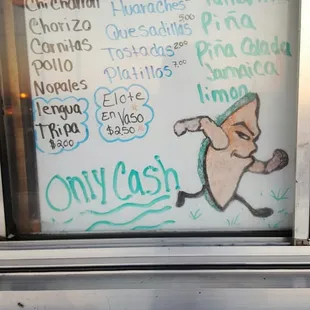 Chicharron
Chorizo
Carnitas
Pollo
Nopales
lengua
Tripa
$2.00
Huaraches
Quesadillas 5.00
Tostadas 2.00
Platillos 7.00
Elote
En
Vaso
$2.50
Piña
Piña Colada
Jamaica
limon
Only Cash